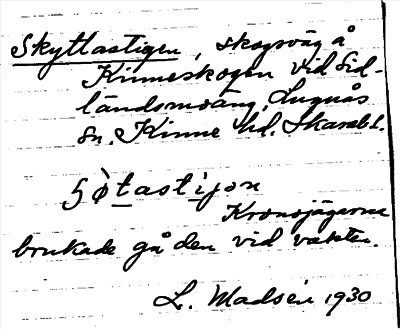 Skyttastigen, skogsväg å
Kinneskogen vid Sid-
ländsmoäng, Lugnås
sn. Kinne hd. Skarab. l.
Kronojägarna
brukade gå den vid vakten.
L. Madsén 1930